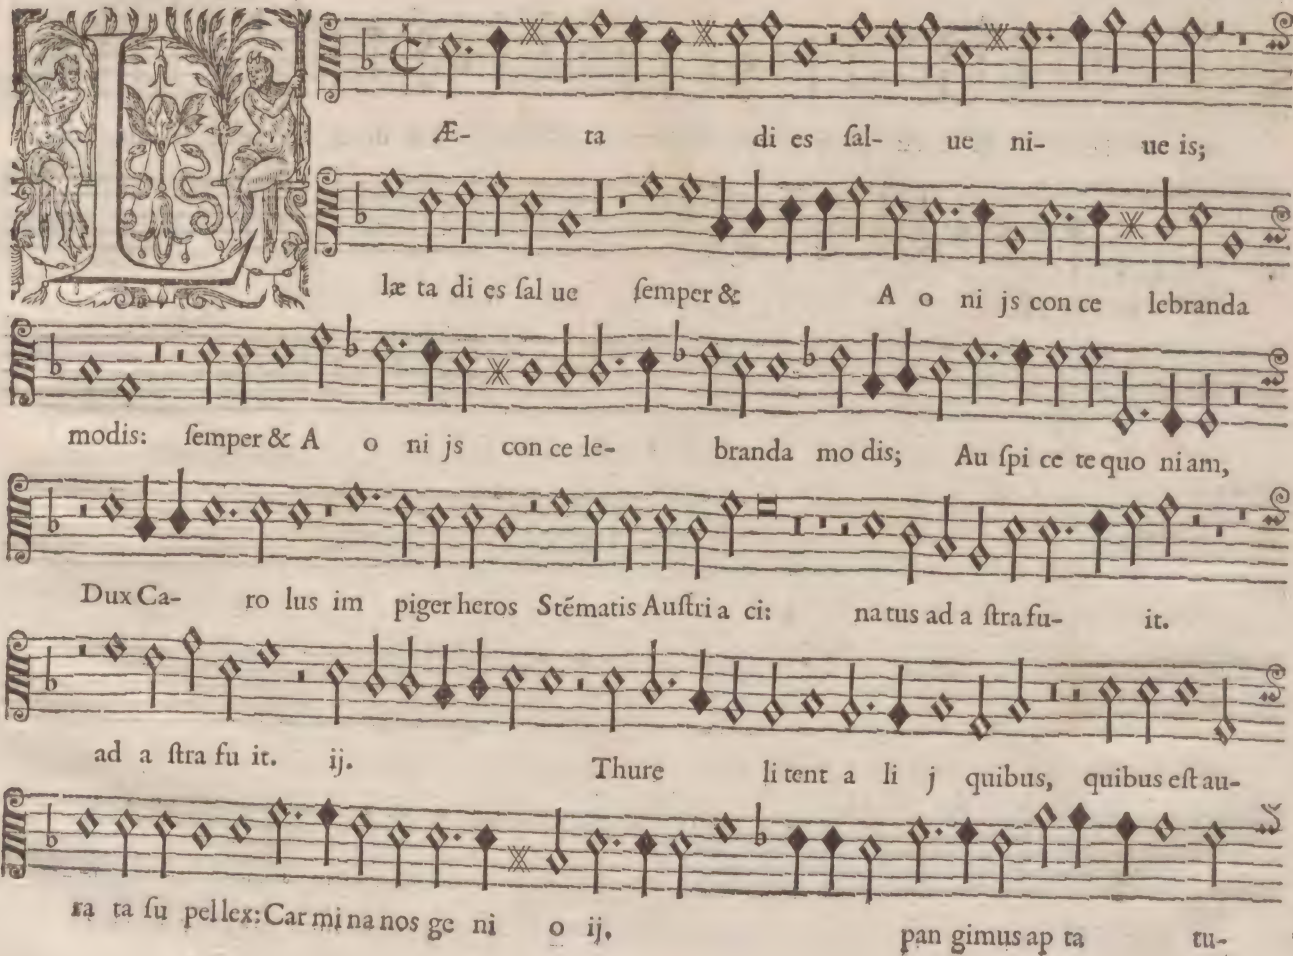 LÆ- ta di es ſal- ue ni- ue is;
læ ta di es ſal ue ſemper & A o ni js con ce lebranda
modis: ſemper & A o ni js con ce le- branda mo dis; Au ſpi ce te quo niam,
Dux Ca- ro lus im piger heros Stẽmatis Auſtri a ci: na tus ad a ſtra fu- it.
ad a ſtra fu it. ij. Thure li tent a li j quibus, quibus eſt au-
ra ta ſu pellex: Car mi na nos ge ni o ij. pan gimus ap ta tu-